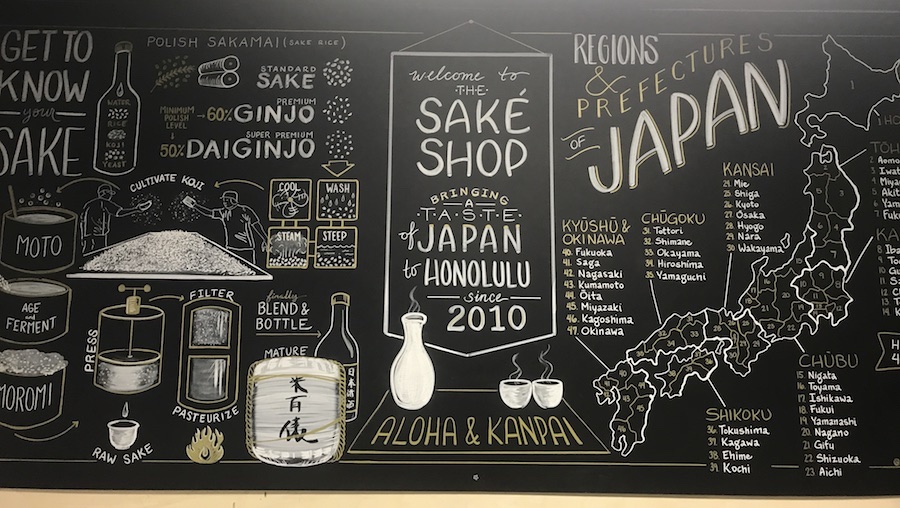 GET TO
KNOW
your
SAKE
WATER
RICE
KOJI
YEAST
POLISH SAKAMAI (SAKE RICE)
STANDARD
SAKE
MINIMUM
POLISH
LEVEL
60%
PREMIUM
GINJO
50%
SUPER PREMIUM
DAIGINJO
CULTIVATE KOJI
COOL
WASH
STEAM
STEEP
MOTO
AGE
and
FERMENT
MOROMI
PRESS
RAW SAKE
FILTER
PASTEURIZE
finally
BLEND &
BOTTLE
MATURE
米百俵
日本酒
welcome to
·THE·
SAKÉ
SHOP
BRINGING
A
TASTE
of JAPAN
to HONOLULU
since
2010
ALOHA & KANPAI
REGIONS
&
PREFECTURES
of
JAPAN
KYŪSHŪ &
OKINAWA
40. Fukuoka
41. Saga
42. Nagasaki
43. Kumamoto
44. Ōita
45. Miyazaki
46. Kagoshima
47. Okinawa
CHŪGOKU
31. Tottori
32. Shimane
33. Okayama
34. Hiroshima
35. Yamaguchi
KANSAI
24. Mie
25. Shiga
26. Kyoto
27. Ōsaka
28. Hyogo
29. Nara
30. Wakayama
SHIKOKU
36. Tokushima
37. Kagawa
38. Ehime
39. Kochi
CHŪBU
15. Nigata
16. Toyama
17. Ishikawa
18. Fukui
19. Yamanashi
20. Nagano
21. Gifu
22. Shizuoka
23. Aichi